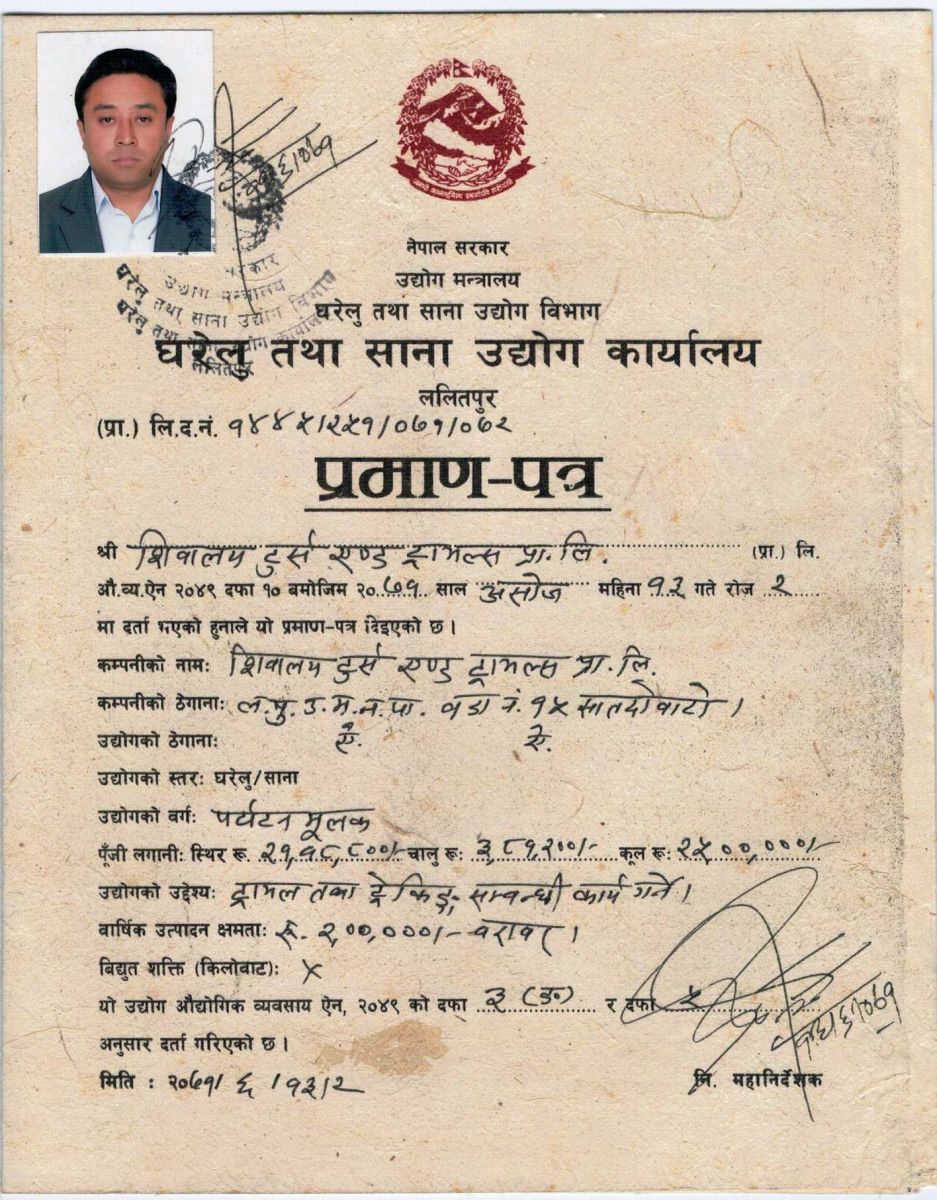 नेपाल सरकार
उद्योग मन्त्रालय
घरेलु तथा साना उद्योग विभाग
घरेलु तथा साना उद्योग कार्यालय
ललितपुर
(प्रा.) लि.द.नं. १४४५/२५१/०७१/०७२
प्रमाण-पत्र
श्री शिवालय टुर्स एण्ड ट्राभल्स प्रा.लि. (प्रा.) लि.
औ.व्य.ऐन २०४९ दफा १० बमोजिम २०७१ साल असोज महिना १३ गते रोज २
मा दर्ता भएको हुनाले यो प्रमाण-पत्र दिइएको छ।
कम्पनीको नाम: शिवालय टुर्स एण्ड ट्राभल्स प्रा.लि.
कम्पनीको ठेगाना: ल.पु.उ.म.न.पा. वडा नं. १५ सातदोबाटो।
उद्योगको ठेगाना: ऐ. ऐ.
उद्योगको स्तर: घरेलु/साना
उद्योगको वर्ग: पर्यटन मूलक
पूँजी लगानी: स्थिर रू. २१,१८,८००/- चालु रू: ३,८१,२००/- कूल रू: २५००,०००/-
उद्योगको उद्देश्य: ट्राभल तथा ट्रेकिङ्ग सम्वन्धी कार्य गर्ने।
वार्षिक उत्पादन क्षमता: रू. २,००,०००/- वरावर।
बिद्युत शक्ति (किलोबाट): X
यो उद्योग औद्योगिक व्यवसाय ऐन, २०४९ को दफा ३ (ङ) र दफा ५
अनुसार दर्ता गरिएको छ।
मिति : २०७१/ ६ /१३/२
नि. महानिर्देशक